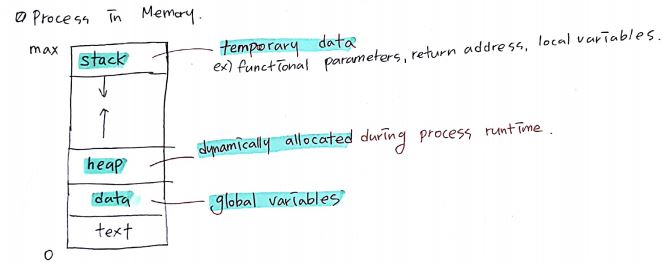 Process in Memory.
max
stack
temporary data
ex) functional parameters, return address, local variables.
heap
dynamically allocated during process runtime.
data
global variables
text
0